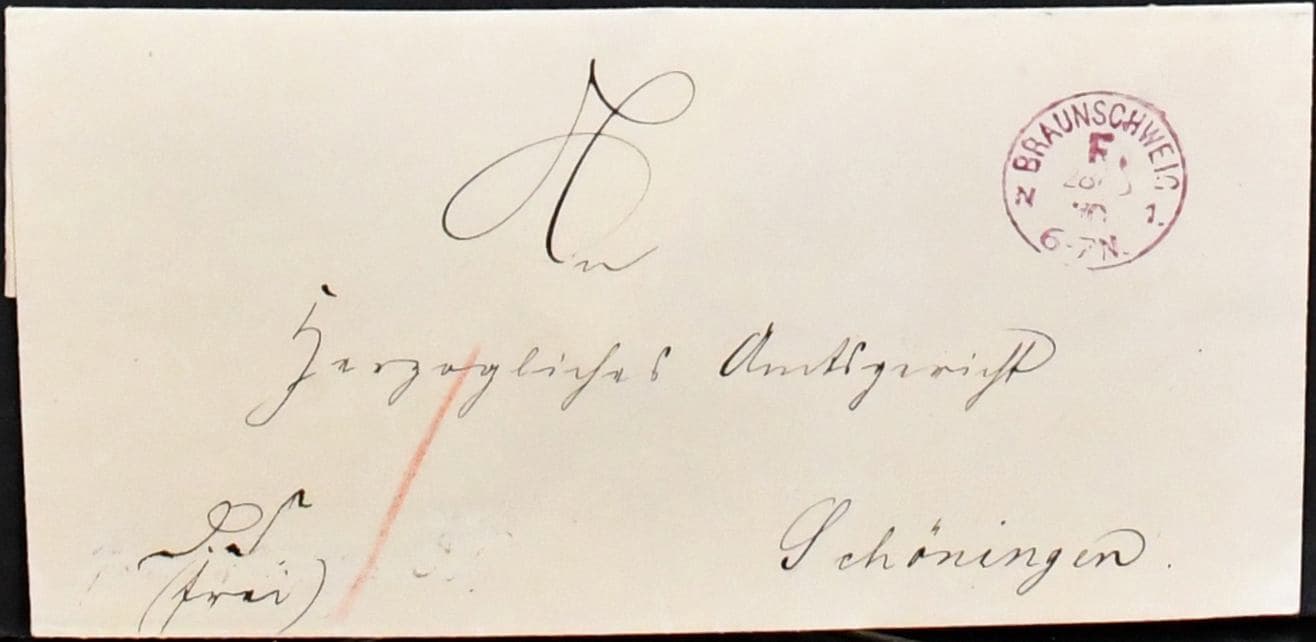 An
BRAUNSCHWEIG
F.
1.
6-7N.
Herzogliches Amtsgericht
Schöningen.
D.S.
(frei)